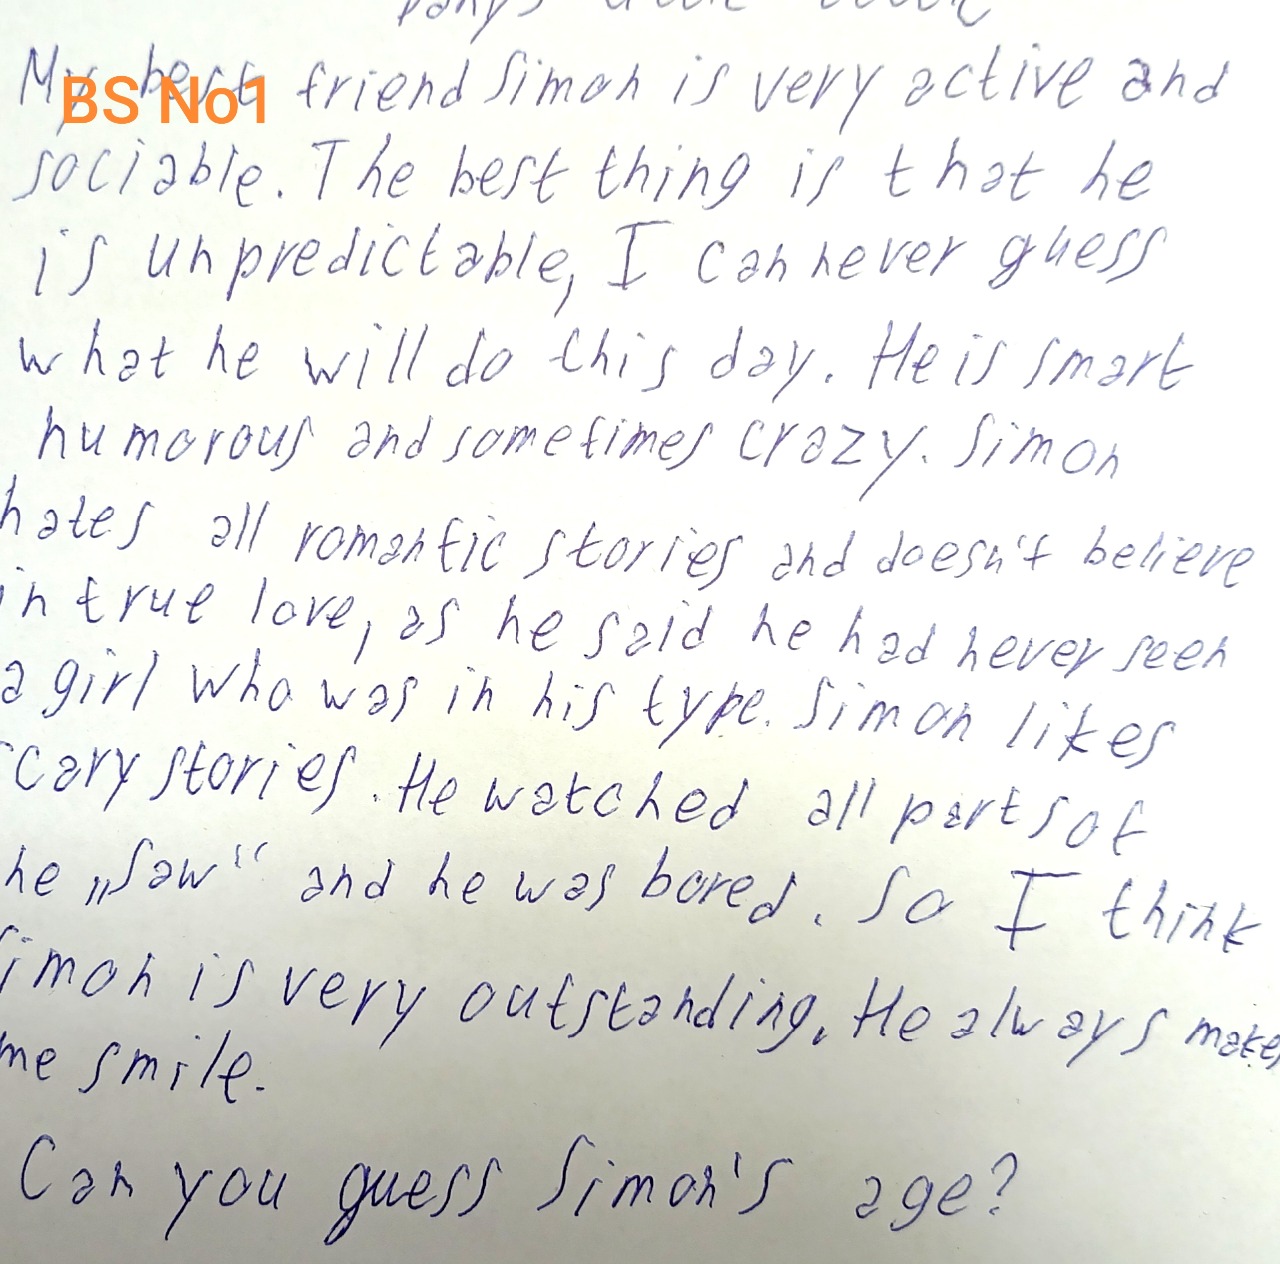 My best friend Simon is very active and
BS No1
sociable. The best thing is that he
is unpredictable, I can never guess
what he will do this day. He is smart
humorous and sometimes crazy. Simon
hates all romantic stories and doesn't believe
in true love, as he said he had never seen
a girl who was in his type. Simon likes
scary stories. He watched all parts of
he „Saw“ and he was bored. So I think
Simon is very outstanding. He always makes
me smile.
Can you guess Simon's age?